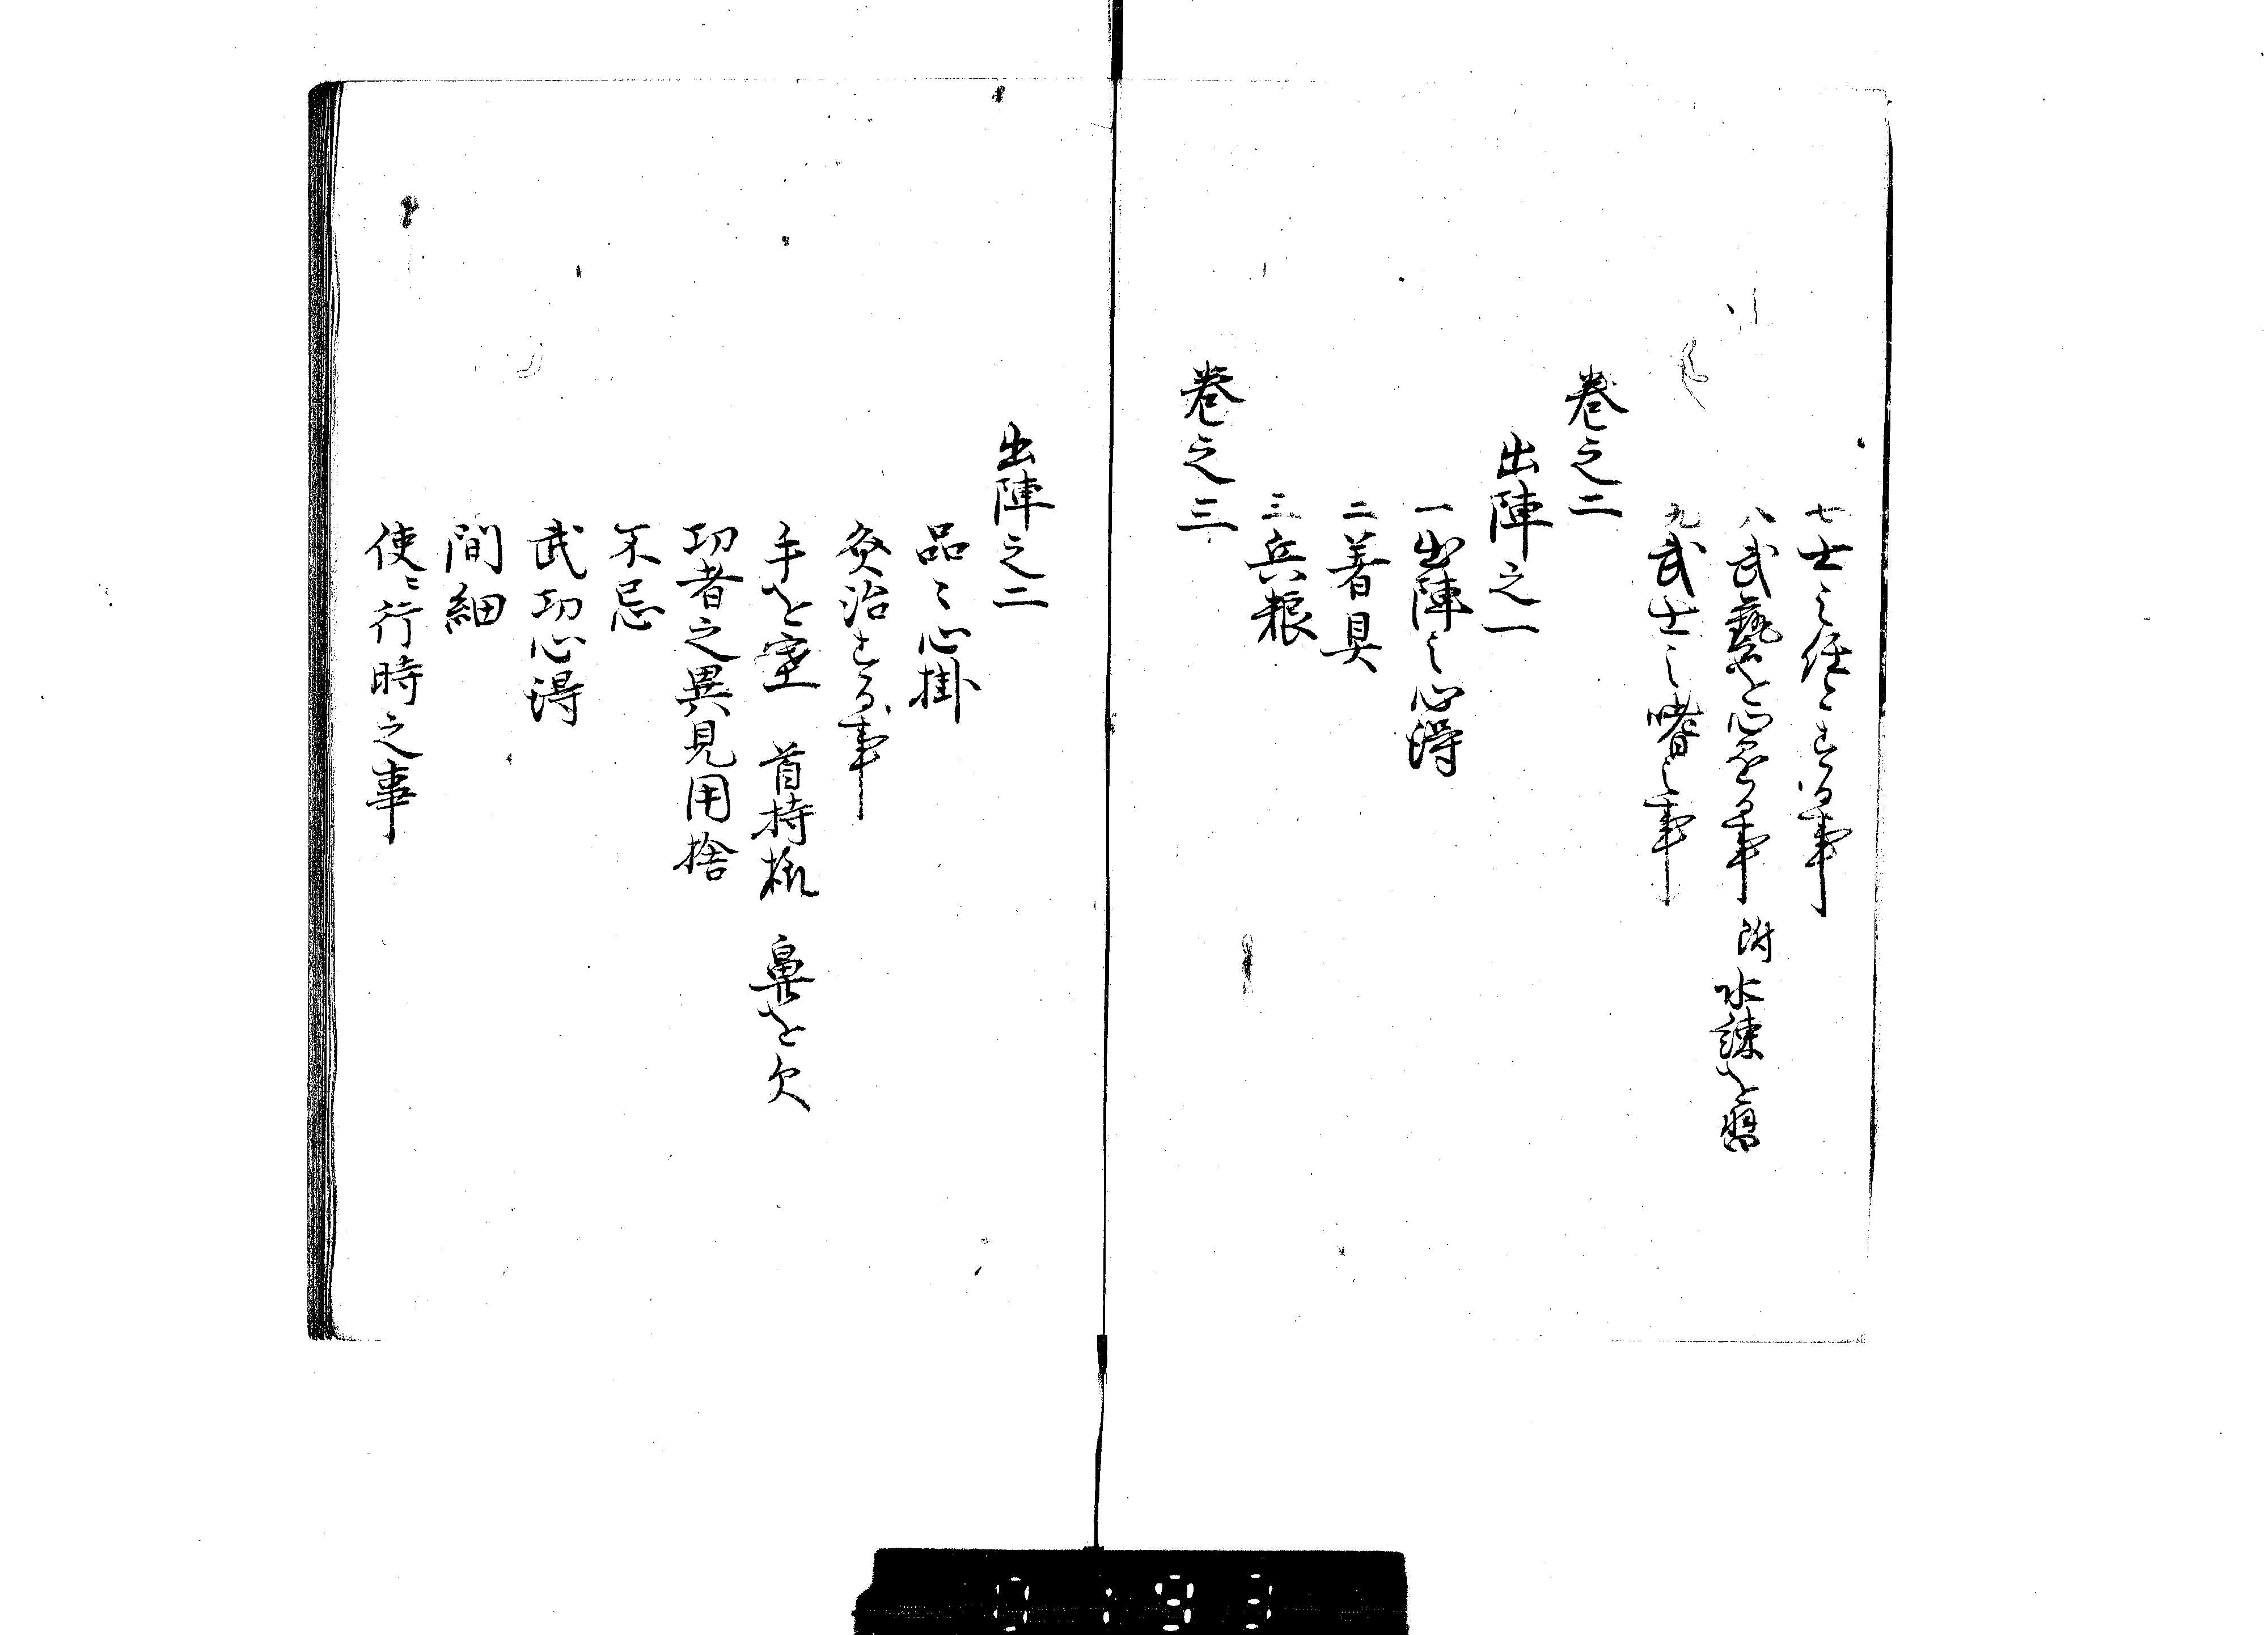 七士之任とする事
八武藝を心不る事 附 水諫を習
九武士之嗜之事
巻之二
出陣之一
一出陣之心得
二著具
三兵粮
巻之三
出陣之二
品々心掛
灸治する事
手を 首持 鼻を欠
功者之異見用捨
不忌
武功心得
間細
使ニ行時之事